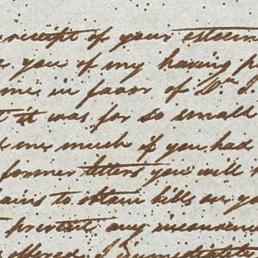 receipt of your esteem
you of my having p
me in favor of Mr
it was for so small
me much if you had
former letters you will
ains to obtain bills on yo
prevent any inconven
offered. Immediate